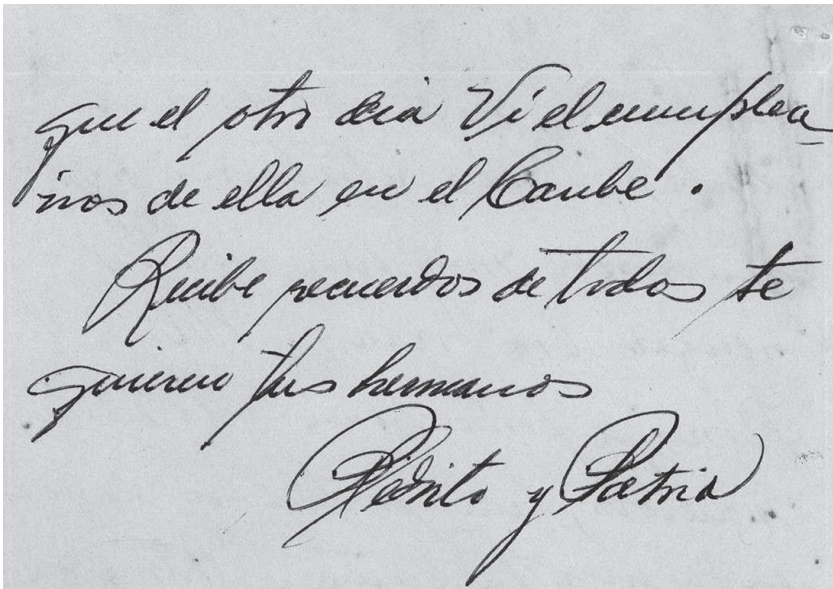 que el otro dia Vi el cumplea
ños de ella en el Caribe.
Recibe recuerdos de todos te
quieren tus hermanos
Pedrito y Patria